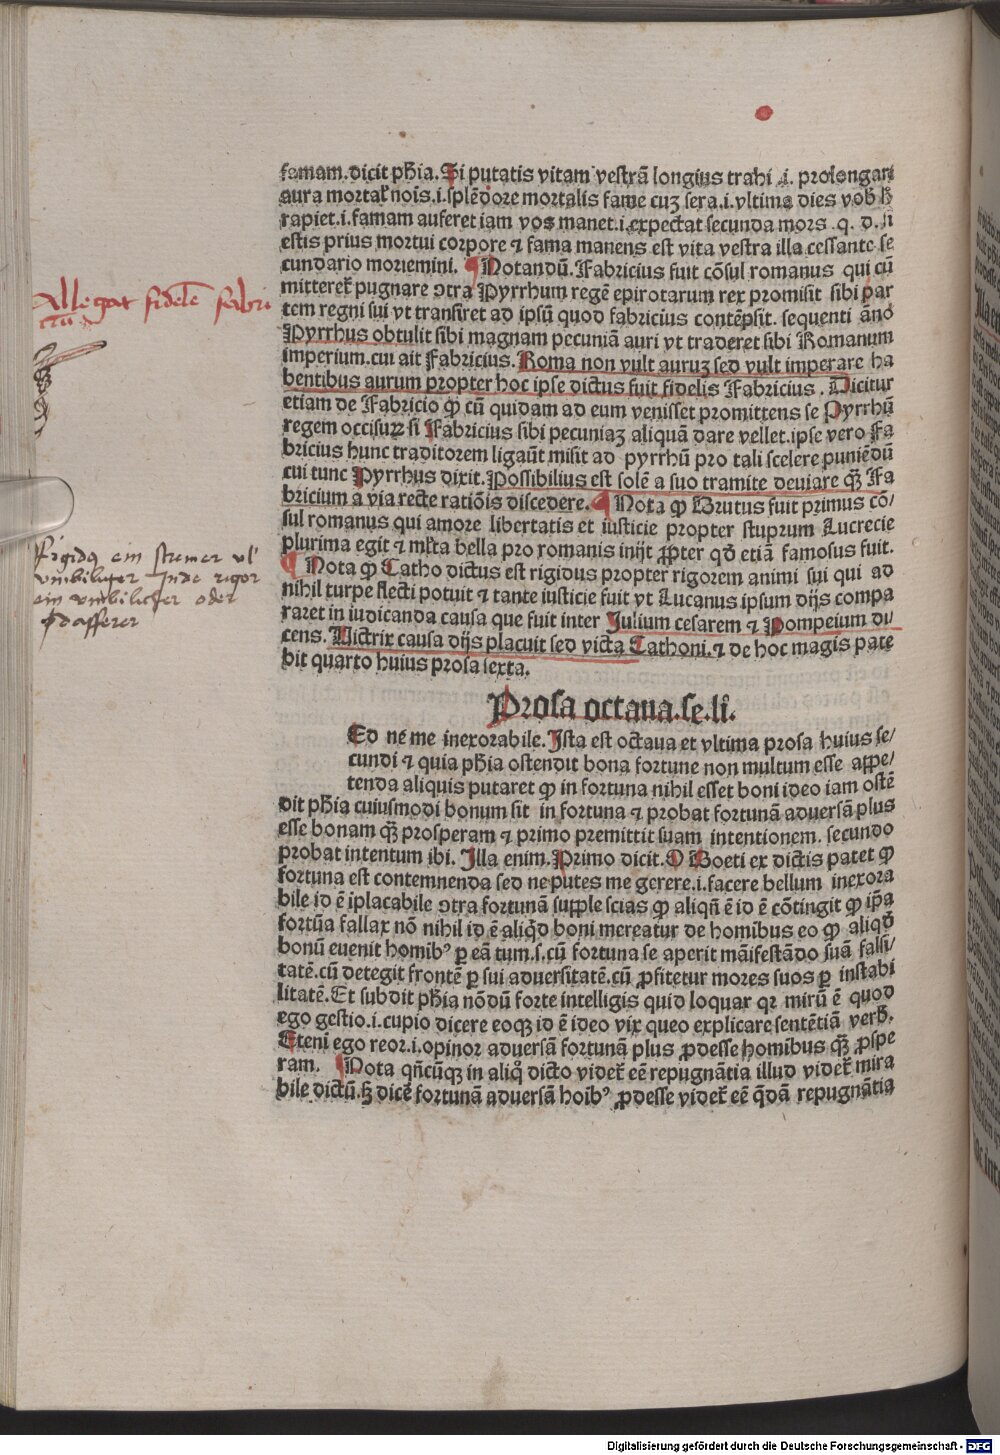 famam.dicit pħia.Si putatis vitam vestrā longius trahi .i. prolongari
aura mortal' nois.i.splēdore mortalis fame cuȝ sera.i.vltima dies vob̄ h̄
rapiet.i.famam auferet iam vos manet.i.expectat secunda mors .q. d.si
estis prius mortui corpore ⁊ fama manens est vita vestra illa cessante se
cundario moriemini. ¶ Notandū. Fabricius fuit cōsul romanus qui cū
mitteret̄ pugnare ↄtra Pyrrhum regē epirotarum rex promisit sibi par
tem regni sui vt transiret ad ipsū quod fabricius contēpsit. sequenti āno
Pyrrhus obtulit sibi magnam pecuniā auri vt traderet sibi Romanum
imperium.cui ait Fabricius. Roma non vult auruȝ sed vult imperare ha
bentibus aurum propter hoc ipse dictus fuit fidelis Fabricius . Dicitur
etiam de Fabricio ꝙ cū quidam ad eum venisset promittens se Pyrrhū
regem occisuꝝ si Fabricius sibi pecuniaȝ aliquā dare vellet.ipse vero Fa
bricius hunc traditorem ligaūt misit ad pyrrhū pro tali scelere puniēdū
cui tunc Pyrrhus dixit.Possibilius est solē a suo tramite deuiare qȝ̄ Fa
bricium a via recte ratiōis discedere. ¶ Nota ꝙ Brutus fuit primus cō/
sul romanus qui amore libertatis et iusticie propter stuprum Lucrecie
plurima egit ⁊ ml'ta bella pro romanis inijt ꝓpter qd̄ etiā famosus fuit.
¶ Nota ꝙ Catho dictus est rigidus propter rigorem animi sui qui ad
nihil turpe flecti potuit ⁊ tante iusticie fuit vt Lucanus ipsum dijs compa
raret in iudicanda causa que fuit inter Julium cesarem ⁊ Pompeium di/
cens. Victrix causa dijs placuit sed victa Cathoni.⁊ de hoc magis pate
bit quarto huius prosa sexta.
Allegat fidelē fabri
ciū
Rigidꝰ ein strenner vl'
vnbiliger Inde rigor
ein vnbilicher oder
Prosa octaua.se.li.
Ed ne me inexorabile.Ista est octaua et vltima prosa huius se/
cundi ⁊ quia pħia ostendit bona fortune non multum esse appe/
tenda aliquis putaret ꝙ in fortuna nihil esset boni ideo iam ostē
dit pħia cuiusmodi bonum sit in fortuna ⁊ probat fortunā aduersā plus
esse bonam qȝ̄ prosperam ⁊ primo premittit suam intentionem. secundo
probat intentum ibi. Illa enim.Primo dicit.O Boeti ex dictis patet ꝙ
fortuna est contemnenda sed ne putes me gerere.i.facere bellum inexora
bile id ē īplacabile ↄtra fortunā supple scias ꝙ aliqn̄ ē id ē cōtingit ꝙ ip̄a
fortūa fallax nō nihil id ē aliqd̄ boni mereatur de homibus eo ꝙ aliqd̄
bonū euenit homib⁹ ꝑ eā tum.s.cū fortuna se aperit māifestādo suā falsi/
tatē.cū detegit frontē ꝑ sui aduersitatē.cū ꝓfitetur mores suos ꝑ instabi
litatē.Et subdit pħia nōdū forte intelligis quid loquar qꝛ mirū ē quod
ego gestio.i.cupio dicere eoqȝ id ē ideo vix queo explicare sentētiā verb̄.
Eteni ego reor.i.opinor aduersā fortunā plus ꝓdesse homibus qȝ̄ ꝓspe
ram. ¶ Nota qn̄cūqȝ in aliqᵒ dicto videt̄ eē repugnātia illud videt̄ mira
bile dictū.ꜩ dicē fortunā aduersā hoib⁹ ꝓdesse videt̄ eē q̄dā repugnātia
Digitalisierung gefördert durch die Deutsche Forschungsgemeinschaft - DFG